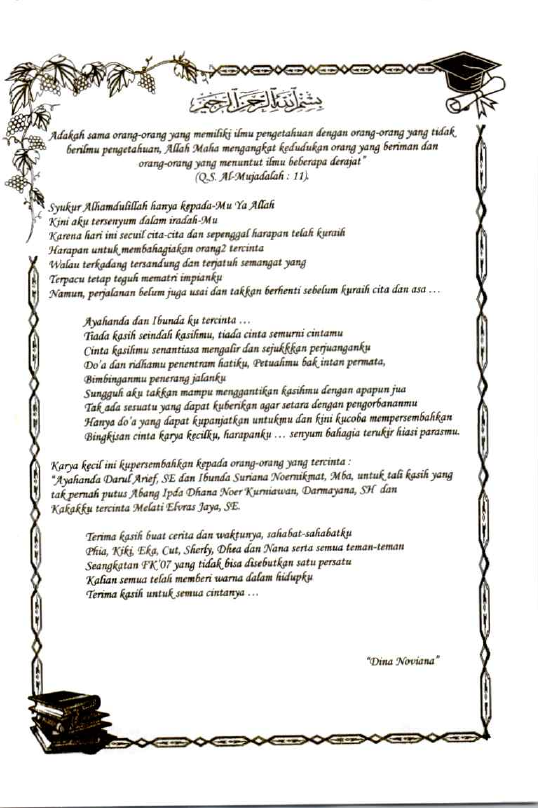 بسم الله الرحمن الرحيم
Adakah sama orang-orang yang memiliki ilmu pengetahuan dengan orang-orang yang tidak
berilmu pengetahuan, Allah Maha mengangkat kedudukan orang yang beriman dan
orang-orang yang menuntut ilmu beberapa derajat"
(Q.S. Al-Mujadalah : 11).
Syukur Alhamdulillah hanya kepada-Mu Ya Allah
Kini aku tersenyum dalam iradah-Mu
Karena hari ini secuil cita-cita dan sepenggal harapan telah kuraih
Harapan untuk membahagiakan orang2 tercinta
Walau terkadang tersandung dan terjatuh semangat yang
Terpacu tetap teguh mematri impianku
Namun, perjalanan belum juga usai dan takkan berhenti sebelum kuraih cita dan asa ...
Ayahanda dan Ibunda ku tercinta ...
Tiada kasih seindah kasihmu, tiada cinta semurni cintamu
Cinta kasihmu senantiasa mengalir dan sejukkkan perjuanganku
Do'a dan ridhamu penentram hatiku, Petuahmu bak intan permata,
Bimbinganmu penerang jalanku
Sungguh aku takkan mampu menggantikan kasihmu dengan apapun jua
Tak ada sesuatu yang dapat kuberikan agar setara dengan pengorbananmu
Hanya do'a yang dapat kupanjatkan untukmu dan kini kucoba mempersembahkan
Bingkisan cinta karya kecilku, harapanku ... senyum bahagia terukir hiasi parasmu.
Karya kecil ini kupersembahkan kepada orang-orang yang tercinta :
"Ayahanda Darul Arief, SE dan Ibunda Suriana Noernikmat, Mba, untuk tali kasih yang
tak pernah putus Abang Ipda Dhana Noer Kurniawan, Darmayana, SH dan
Kakakku tercinta Melati Elvras Jaya, SE.
Terima kasih buat cerita dan waktunya, sahabat-sahabatku
Phia, Kiki, Eka, Cut, Sherly, Dhea dan Nana serta semua teman-teman
Seangkatan FK'07 yang tidak bisa disebutkan satu persatu
Kalian semua telah memberi warna dalam hidupku
Terima kasih untuk semua cintanya ...
"Dina Noviana"